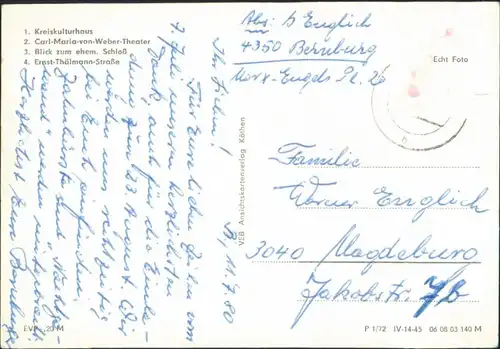 1. Kreiskulturhaus
2. Carl-Maria-von-Weber-Theater
3. Blick zum ehem. Schloß
4. Ernst-Thälmann-Straße
Abs: B Englich
4350 Bernburg
Marx-Engels Pl. 26
Echt Foto
B, 11.7.80
Ihr Lieben!
Für Eure lieben Zeilen vom
7. Juli unsern herzlichsten
Dank, auch für die Einla-
dung zum 23. August. Wir
werden uns rechtzeitig
bei Euch einfinden.
Zahnbürste und "Nachtge-
wand" werden mitgebracht.
Herzlichst Eure Bernburger
VEB Ansichtskartenverlag Köthen
Familie
Werner Englich
3040 Magdeburg
Jakobstr 7b
EVP -,20 M
P 1/72 IV-14-45 06 08 03 140 M